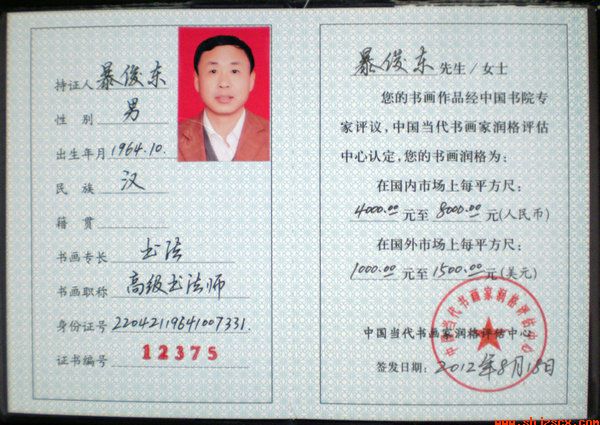 持证人 暴俊东
性 别 男
出生年月 1964.10.
民 族 汉
籍 贯
书画专长 书法
书画职称 高级书法师
身份证号 22042119641007331.
证书编号 12375
暴俊东 先生/女士
您的书画作品经中国书院专
家评议,中国当代书画家润格评估
中心认定,您的书画润格为:
在国内市场上每平方尺:
4000.00 元至 8000.00 元(人民币)
在国外市场上每平方尺:
1000.00 元至 1500.00 元(美元)
中国当代书画家润格评估中心
中国当代书画家润格评估中心
签发日期: 2012年8月18日